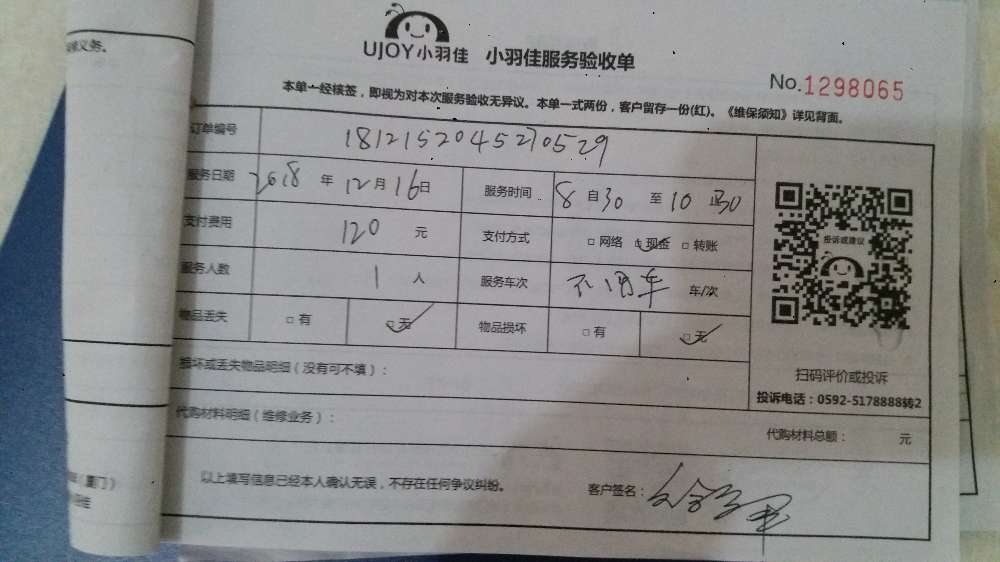 修义务。
UJOY小羽佳 小羽佳服务验收单
No.1298065
本单一经核签，即视为对本次服务验收无异议。本单一式两份，客户留存一份(红)。《维保须知》详见背面。
订单编号 1812152045270529
服务日期 2018年12月16日 服务时间 8自30至10点30
支付费用 120元 支付方式 □网络 □现金 □转账
服务人数 1人 服务车次 不用车 车/次
物品丢失 □有 □无 物品损坏 □有 □无
投诉或建议
扫码评价或投诉
投诉电话：0592-5178888转2
损坏或丢失物品明细（没有可不填）：
代购材料明细（维修业务）： 代购材料总额： 元
（厦门）
以上填写信息已经本人确认无误，不存在任何争议纠纷。 客户签名：